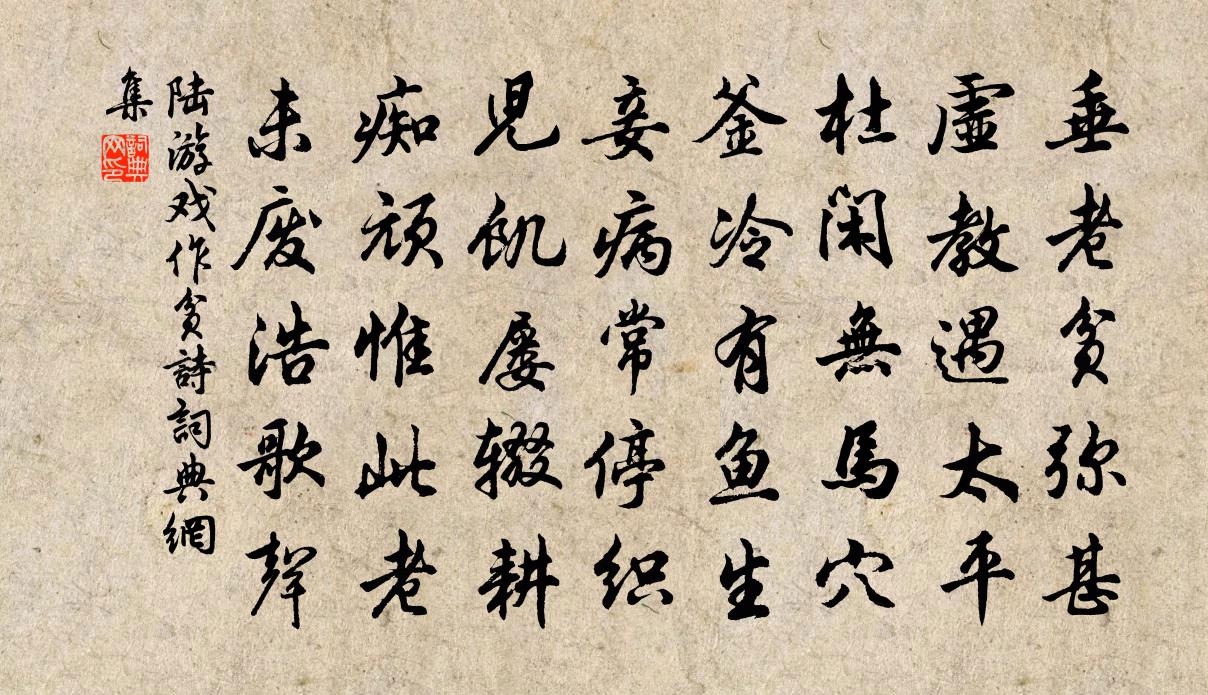 垂老贫弥甚
虚教遇太平
杜闲無馬穴
釜冷有鱼生
妾病常停织
児飢屡辍耕
痴顽惟此老
未废浩歌聲
陆游戏作贫詩詞典網
集
詞典
网印